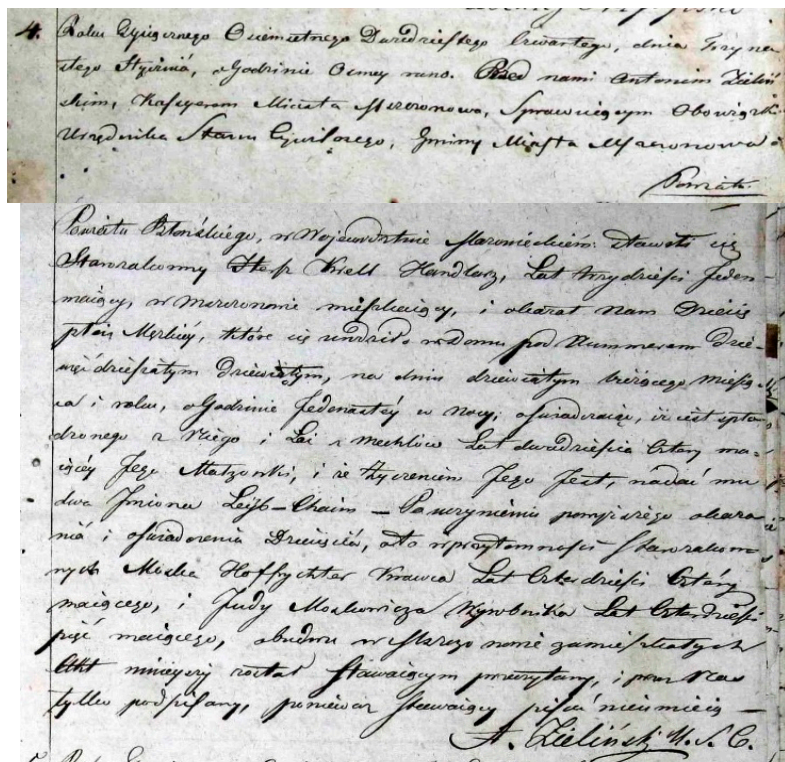 4. Roku Tysiącznego Ośmsetnego Dwudziestego Czwartego, dnia Trzyna-
stego Stycznia, o Godzinie Osmey rano. Przed nami Antonim Zieliń-
skim, Kassyerem Miasta Mszczonowa, Sprawuiącym Obowiązki
Urzędnika Stanu Cywilnego, Gminy Miasta Mszczonowa
Powiatu
Powiatu Błońskiego, w Woiewodztwie Mazowieckiem. Stawił się
Starozakonny Herszk Handlarz, Lat trzydzieści Jeden
maiący, w Mszczonowie mieszkaiący, i okazał Nam Dziecię
płci Męzkiéy, które się urodziło w domu pod Nummerem Dzie-
więćdziesiątym Dziewiątym, na dniu dziewiątym bieżącego Miesią-
ca i roku, o Godzinie Jedenastéy w Nocy; oświadczaiąc, iż iest spło-
dzonego z Niego i Lai z Mechlów Lat dwadzieścia Cztery ma-
iącéy Jego Małżonki, i że życzeniem Jego Jest, nadać mu
dwa Jmiona Leyb-Chaim - Po uczynieniu powyższego okaza-
nia i oświadczenia Dziecięcia, oto w przytomności Starozakon-
nych Moska Hoffrychter Krawca Lat Czterdzieści Cztéry
maiącego, i Judy Moskowicza Wyrobnika Lat Czterdzieści
pięć maiącego, obudwu w Mszczonowie zamieszkałych
Akt ninieyszy został Stawaiącym przeczytany, i przez Nas
tylko podpisany, ponieważ Stawaiący pisać nieumieią -
A. Zieliński U. S. C.